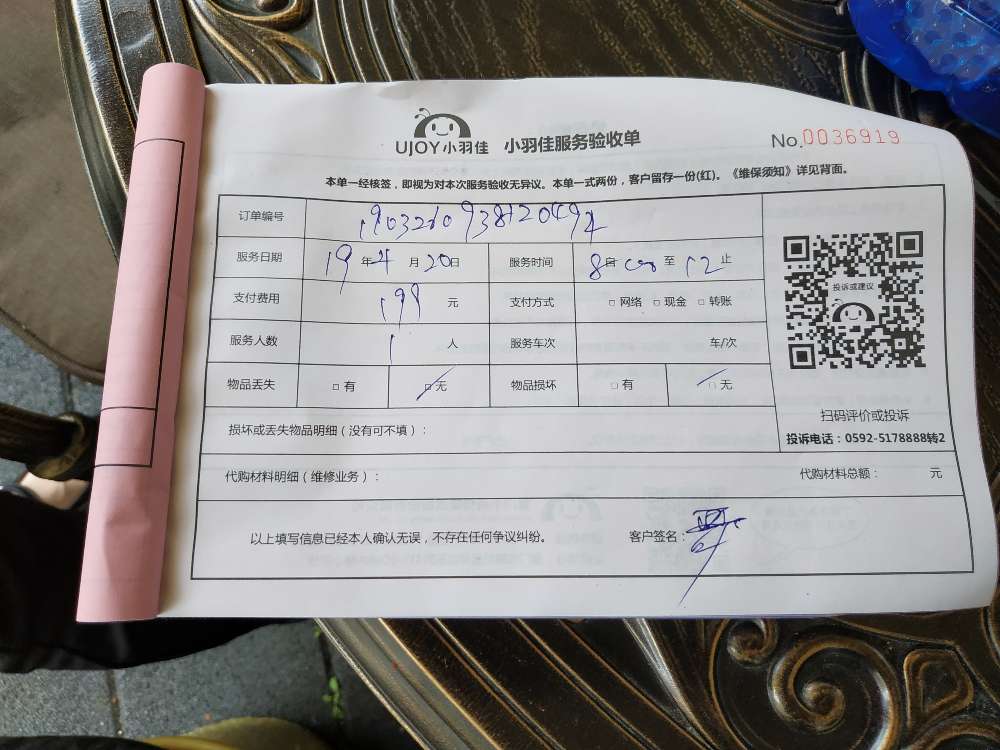 UJOY小羽佳 小羽佳服务验收单 No.0036919
本单一经核签，即视为对本次服务验收无异议。本单一式两份，客户留存一份(红)。《维保须知》详见背面。
订单编号
服务日期 19年4月20日 服务时间 8 自 00 至 12 止
支付费用 199 元 支付方式 □ 网络 □ 现金 □ 转账
服务人数 1 人 服务车次 车/次
物品丢失 □ 有 □ 无 物品损坏 □ 有 □ 无
投诉或建议
扫码评价或投诉
投诉电话：0592-5178888转2
损坏或丢失物品明细（没有可不填）：
代购材料明细（维修业务）： 代购材料总额： 元
以上填写信息已经本人确认无误，不存在任何争议纠纷。 客户签名：